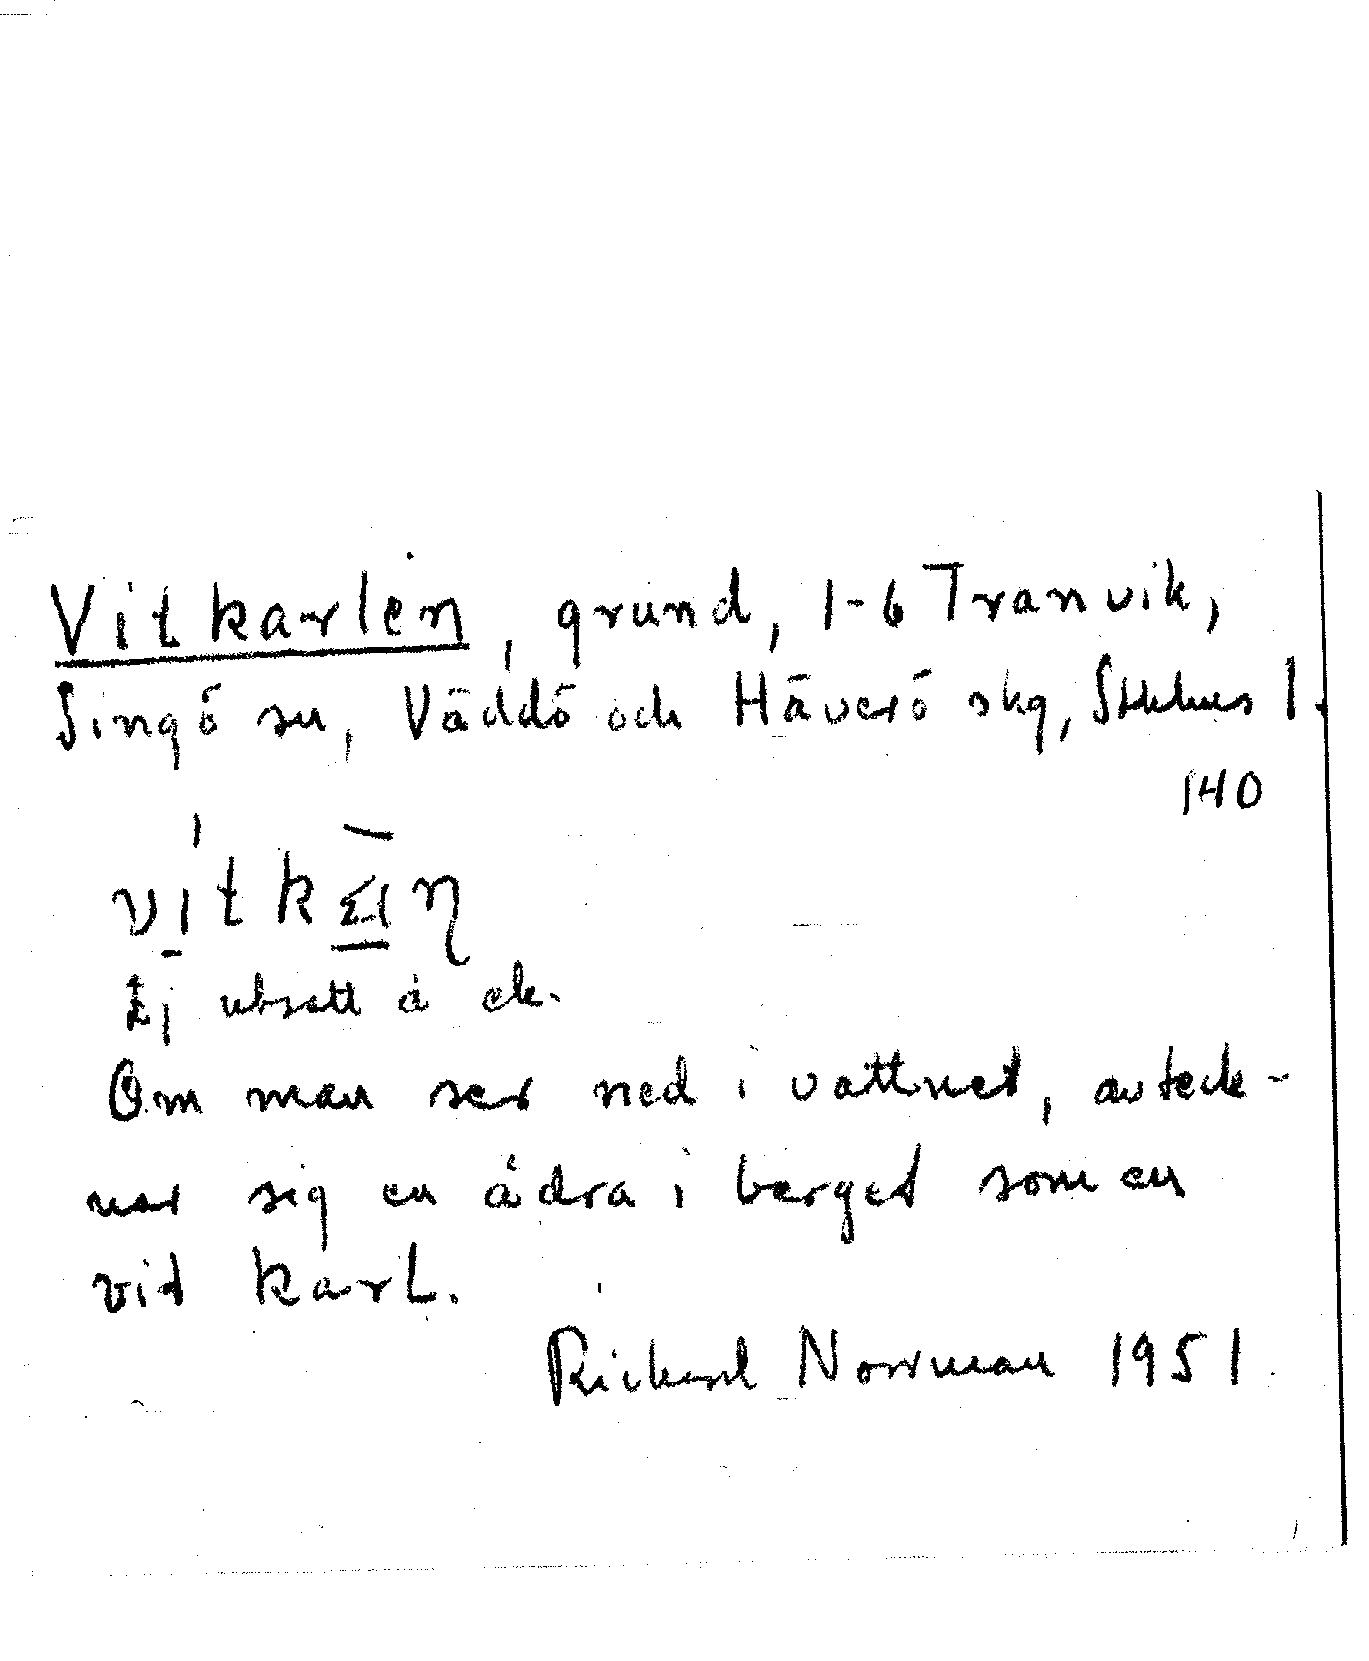 Vitkarlen, grund, 1-6 Tranvik,
Singö sn, Väddö och Häverö skg, Sthlms l.
140
Ej utsatt å ek.
Om man ser ned i vattnet, avteck-
nar sig en ådra i berget som en
vit karl.
Rickard Norrman 1951